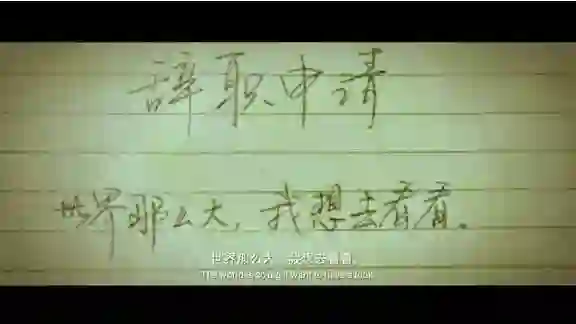 辞职申请
世界那么大，我想去看看。
世界那么大 我想去看看
The world is so big I want to have a look